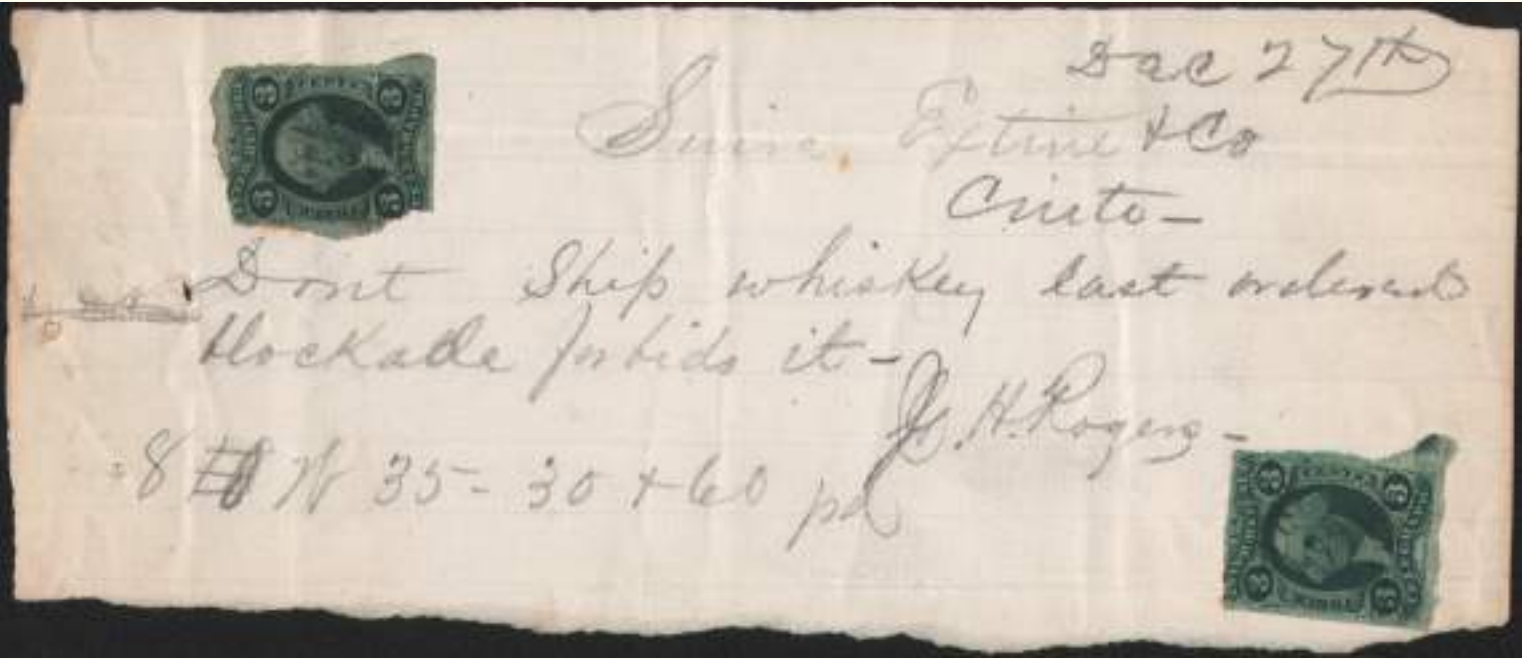 Dec 27th
Extine & Co
Cinto -
Dont Ship whiskey last ordered
blockade forbids it -
H. Rogers -
8 W 35 - 30 + 60 pd